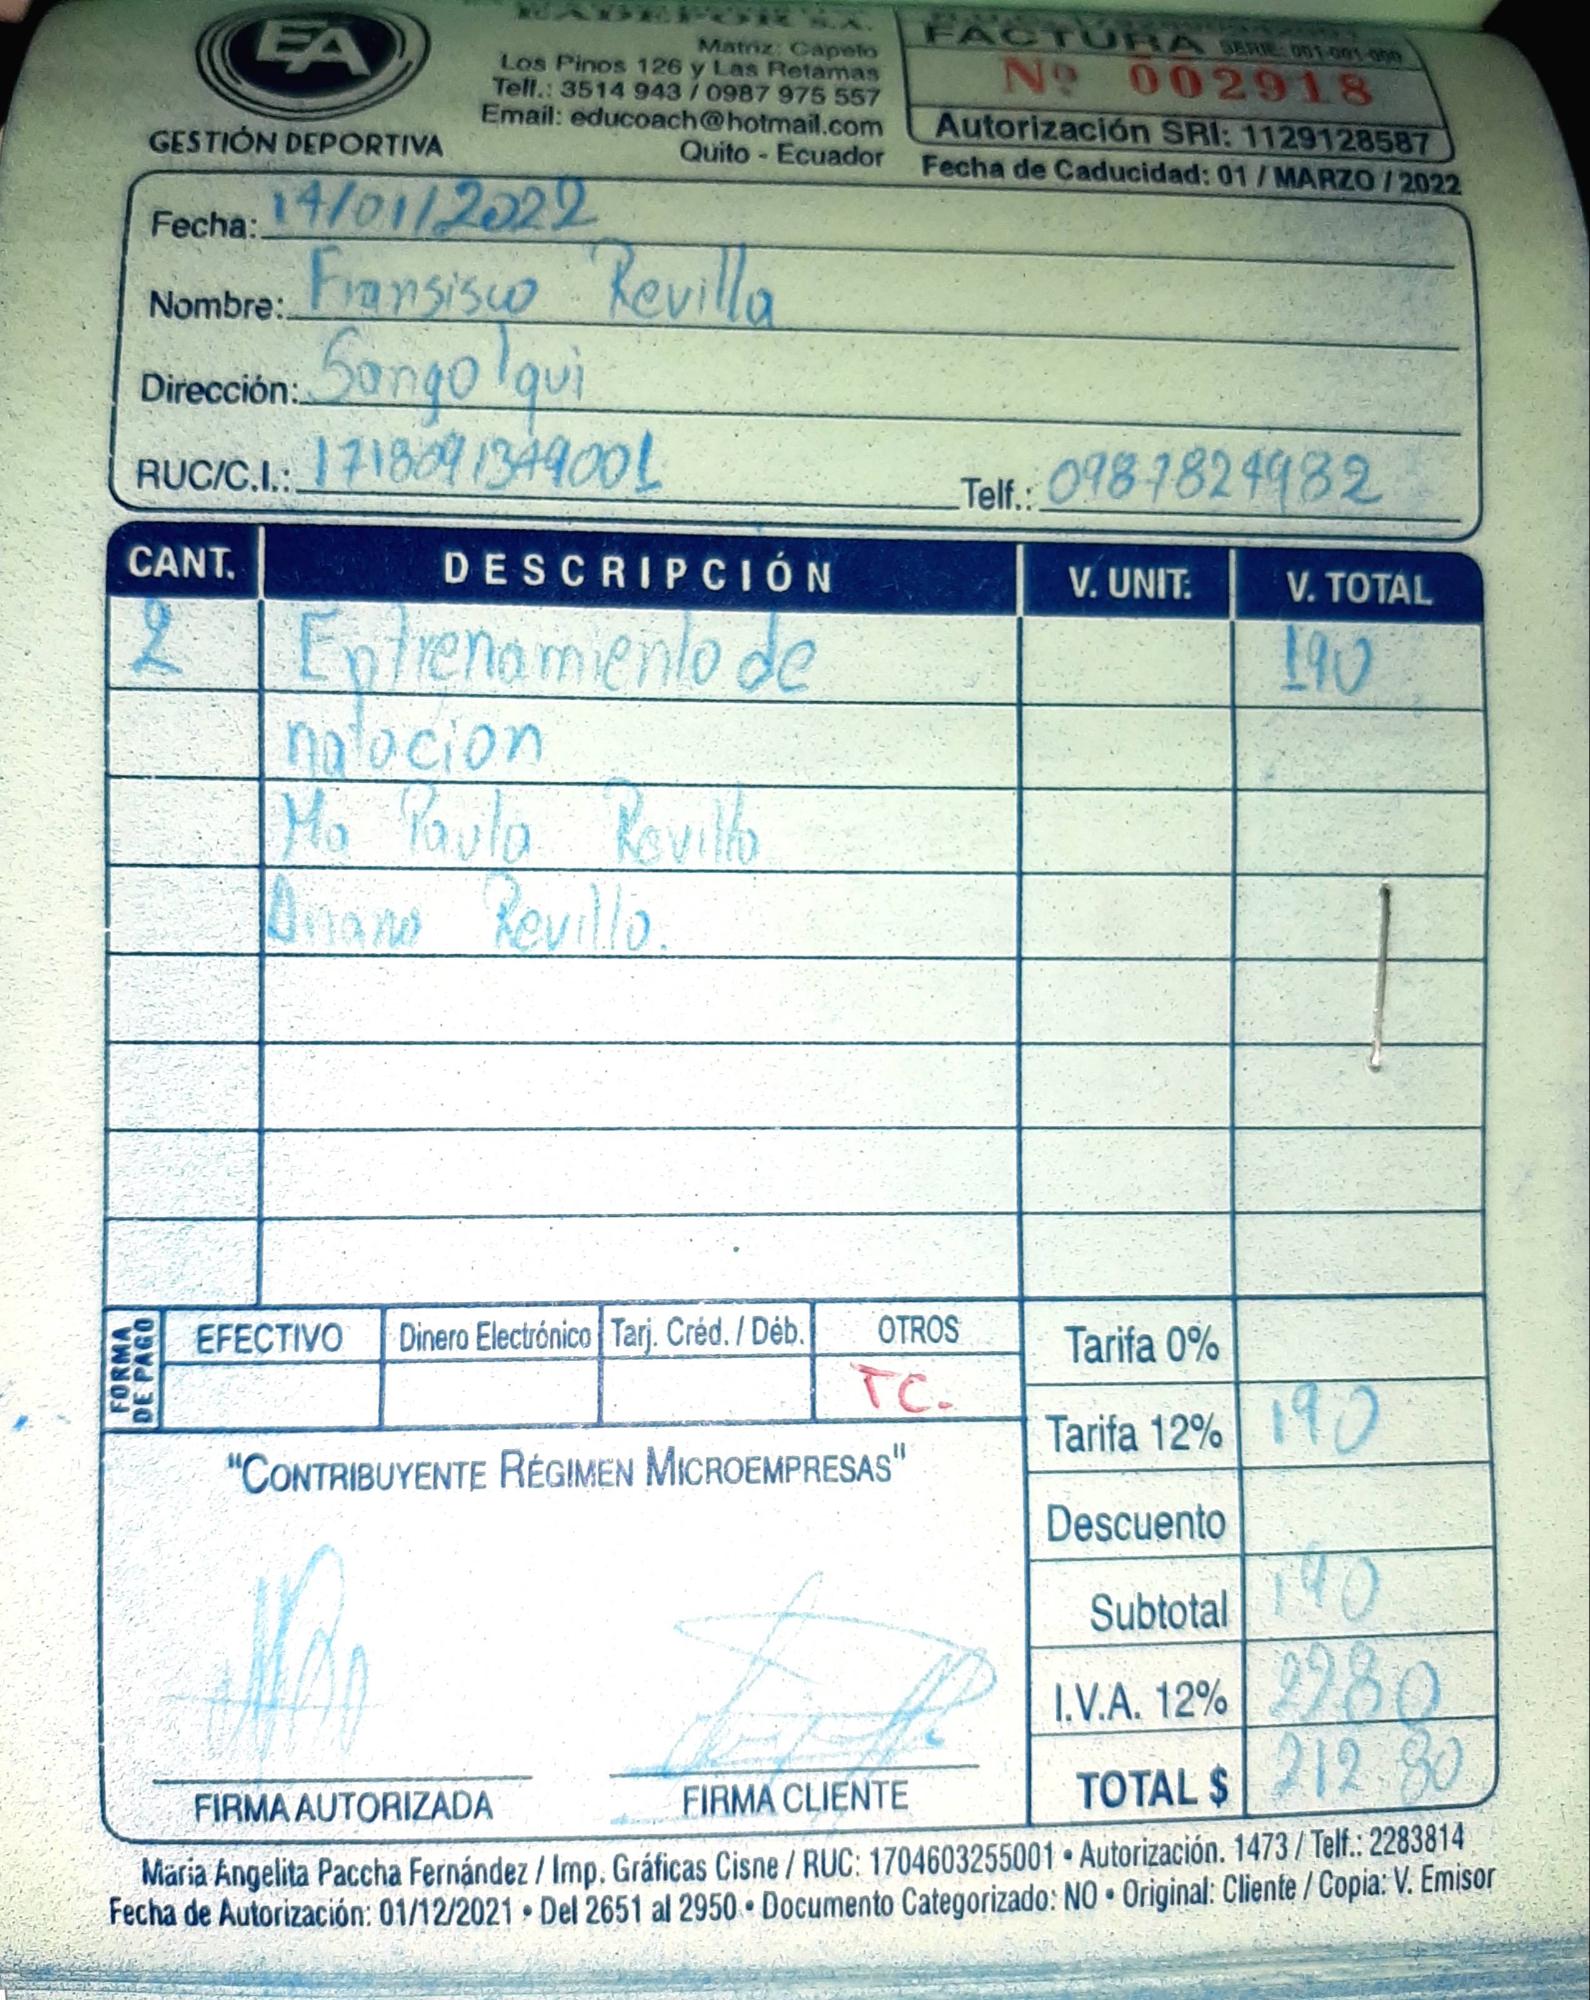 EADEPOR S.A.
EA
GESTIÓN DEPORTIVA
Matriz: Capelo
Los Pinos 126 y Las Retamas
Telf.: 3514 943 / 0987 975 557
Email: educoach@hotmail.com
Quito - Ecuador
FACTURA SERIE: 001-001-000
Nº 002918
Autorización SRI: 1129128587
Fecha de Caducidad: 01 / MARZO / 2022
Fecha: 14/01/2022
Nombre: Fransisco Revilla
Dirección: Sangolqui
RUC/C.I.: Telf.: 0987824982
CANT. DESCRIPCIÓN V. UNIT: V. TOTAL
2 Entrenamiento de 190
natacion
Ma Paula Revilla
Revilla.
FORMA DE PAGO
EFECTIVO Dinero Electrónico Tarj. Créd. / Déb. OTROS
TC.
Tarifa 0%
Tarifa 12% 190
Descuento
Subtotal 190
I.V.A. 12% 2280
TOTAL $ 212 80
"CONTRIBUYENTE RÉGIMEN MICROEMPRESAS"
FIRMA AUTORIZADA FIRMA CLIENTE
Maria Angelita Paccha Fernández / Imp. Gráficas Cisne / RUC: 1704603255001 • Autorización. 1473 / Telf.: 2283814
Fecha de Autorización: 01/12/2021 • Del 2651 al 2950 • Documento Categorizado: NO • Original: Cliente / Copia: V. Emisor